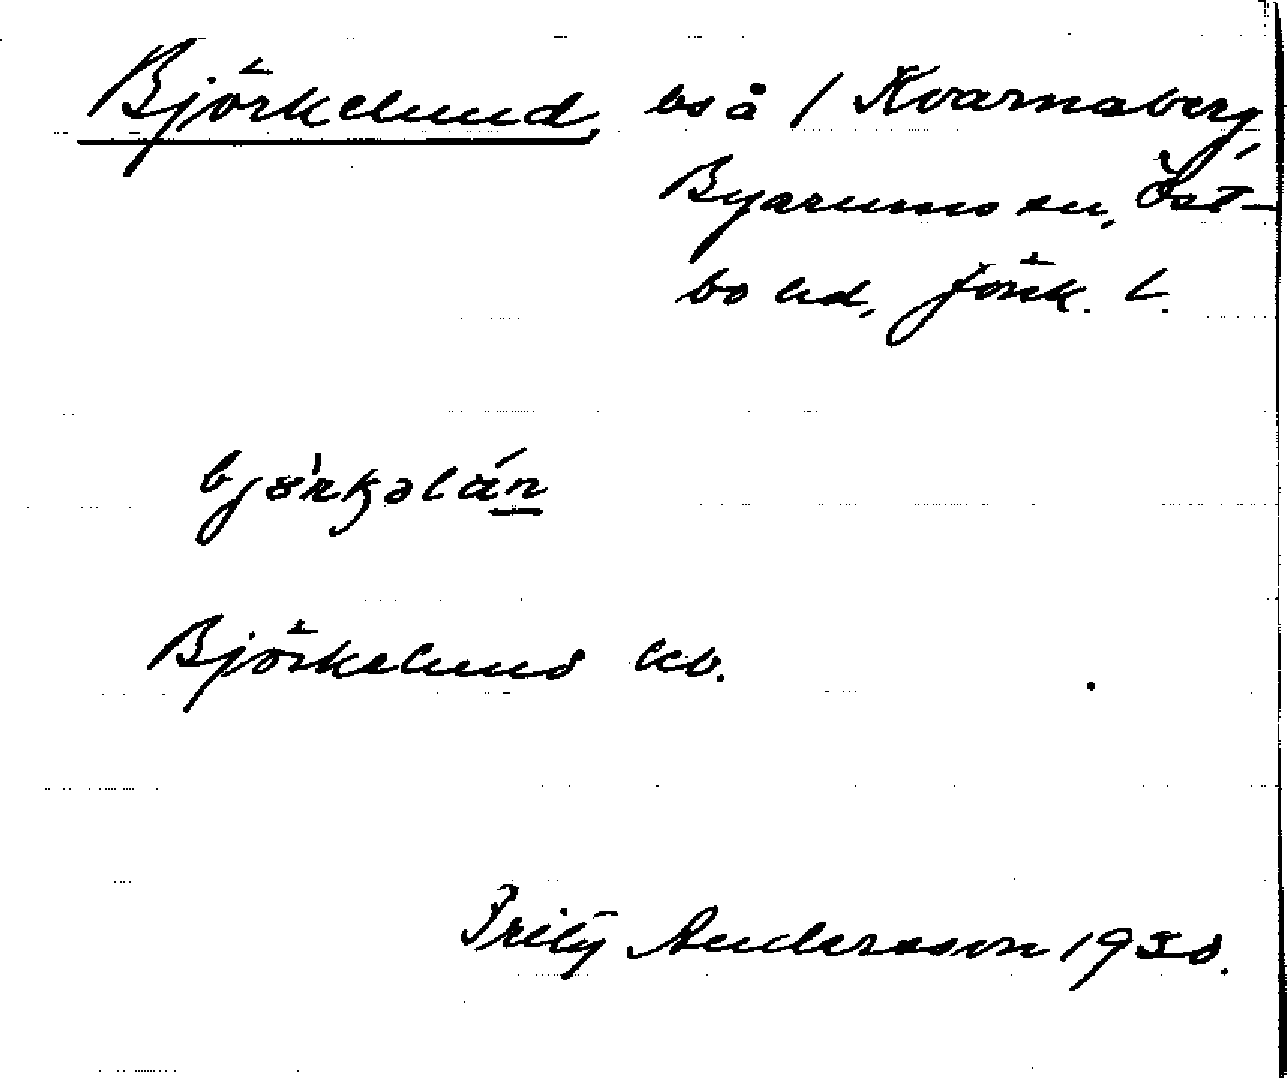 Björkelund, bs å / Kvarnaberg,
Byarums sn, Öst-
bo hd, Jönk. l.
björkəlán
Björkelund kb.
Fritz Andersson 1930.